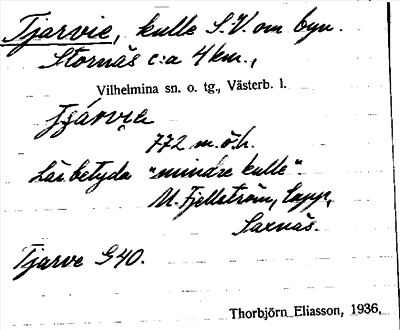 Tjarvie, kulle S.V. om byn.
Stornäs c:a 4 km.,
Vilhelmina sn. o. tg., Västerb. l.
772 m.ö.h.
Lär betyda "mindre kulle".
M. Fjellström, lapp,
Saxnäs.
Tjarve G40.
Thorbjörn Eliasson, 1936.